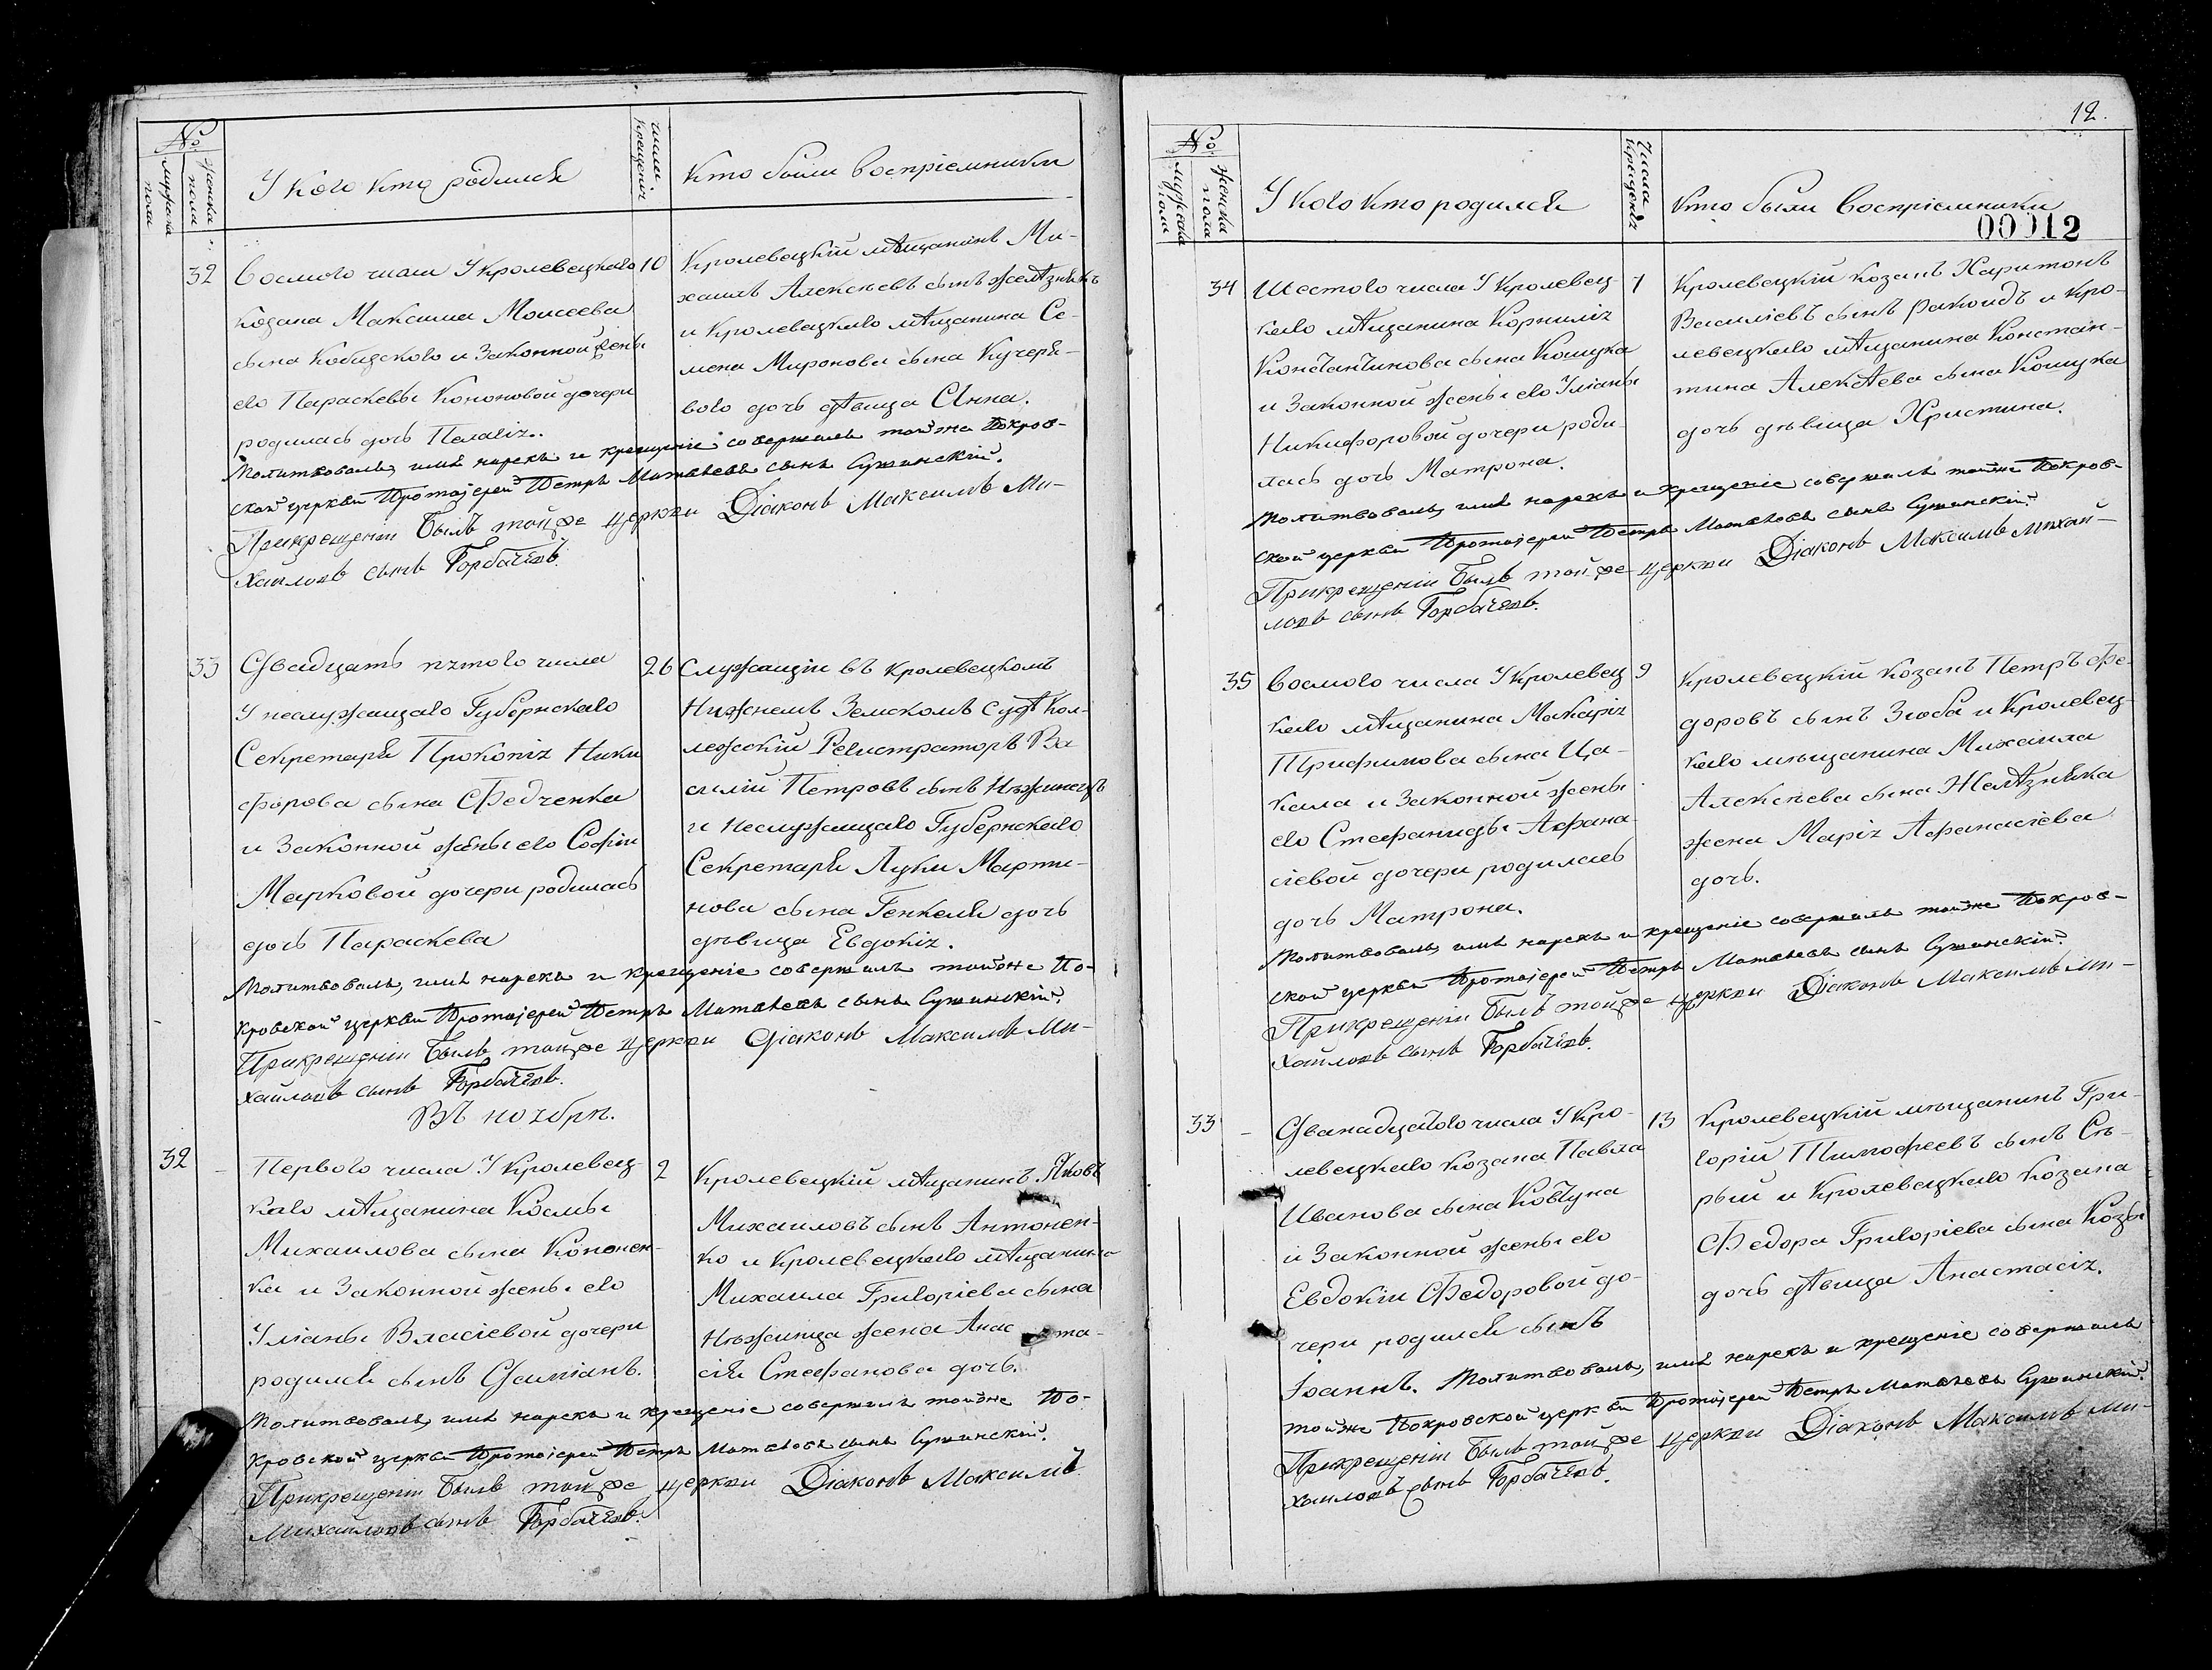 №
мужеска пола
женска пола
У кого кто родился
числа крещенія
кто были воспріемники
32
Восмого числа У Кролевецкого
козака Максима Моисеева
сына Кобизского и Законной жены
его Параскевы Кононовой дочери
родилась дочь Пелагія.
10
Кролевецкій мѣщанинъ Ми-
хаилъ Алексѣевъ сынъ Желѣзнякъ
и Кролевецкого мѣщанина Се-
мена Миронова сына Кучеря-
вого дочь дѣвица Анна.
Молитвовалъ, имя нарекъ и крещеніе совершилъ тойже Покров-
ской церкви Протоіерей Петръ Матвѣевъ сынъ Сушинскій.
При крещеніи Былъ тойже церкви Діаконъ Максимъ Ми-
хайловъ сынъ Горбачевъ.
33
Двадцать пятого числа
У неслужащаго Губернскаго
Секретаря Прокопія Ники
форова сына Федченка
и Законной жены его Софіи
Марковой дочери родилась
дочь Параскева
26
Служащій въ Кролевецкомъ
Нижнемъ Земскомъ Судѣ Кол-
лежскій Регистраторъ Ва
силій Петровъ сынъ Нѣжинецъ
и неслужащаго Губернскаго
Секретаря Луки Марти-
нова сына Генкеля дочь
дѣвица Евдокія.
Молитвовалъ, имя нарекъ и крещеніе совершилъ тойже По-
кровской церкви Протоіерей Петръ Матвѣевъ сынъ Сушинскій.
При крещеніи Былъ тойже церкви Діаконъ Максимъ Ми-
хайловъ сынъ Горбачевъ.
Въ ноябрѣ.
32
Первого числа У Кролевец-
кого мѣщанина Космы
Михаилова сына Кононен-
ка и Законной жены его
Уліаны Власіевой дочери
родился сынъ Даміанъ.
2
Кролевецкій мѣщанинъ Яковъ
Михаиловъ сынъ Антонен-
ко и Кролевецкого мѣщанина
Михаила Григоріева сына
Нѣжинца жена Анаста-
сія Стефанова дочь.
Молитвовалъ, имя нарекъ и крещеніе совершилъ тойже По-
кровской церкви Протоіерей Петръ Матвѣевъ сынъ Сушинскій.
При крещеніи Былъ тойже церкви Діаконъ Максимъ
Михайловъ сынъ Горбачевъ.
12.
№
мужеска пола
женска пола
У кого кто родился
Числа крещенія
Кто были воспріемники
00012
34
Шестого числа У Кролевец-
кого мѣщанина Корнилія
Константинова сына Кошука
и Законной жены его Уліаны
Никифоровой дочери роди-
лась дочь Матрона.
7
Кролевецкій козакъ Харитонъ
Василіевъ сынъ Ракоидъ и Кро-
левецкого мѣщанина Констан-
тина Алексѣева сына Кошука
дочь дѣвица Христина.
Молитвовалъ, имя нарекъ и крещеніе совершилъ тойже Покров-
ской церкви Протоіерей Петръ Матвѣевъ сынъ Сушинскій.
При крещеніи Былъ тойже церкви Діаконъ Максимъ Михай-
ловъ сынъ Горбачевъ.
35
Восмого числа У Кролевец
кого мѣщанина Макарія
Трифимова сына Ца-
кала и Законной жены
его Стефаниды Афана-
сіевой дочери родилась
дочь Матрона.
9
Кролевецкій козакъ Петръ Фе-
доровъ сынъ Зюба и Кролевец-
кого мѣщанина Михаила
Алексѣева сына Желѣзняка
жена Марія Афанасіева
дочь.
Молитвовалъ, имя нарекъ и крещеніе совершилъ тойже Покров-
ской церкви Протоіерей Петръ Матвѣевъ сынъ Сушинскій.
При крещеніи Былъ тойже церкви Діаконъ Максимъ Ми-
хайловъ сынъ Горбачевъ.
33
Дванадцатого числа У Кро-
левецкого козака Павла
Иванова сына Ковтуна
и Законной жены его
Евдокіи Федоровой до-
чери родился сынъ
Іоаннъ.
13
Кролевецкій мѣщанинъ Гри-
горій Тимофеевъ сынъ Сѣ-
рый и Кролевецкого козака
Федора Григоріева сына Козы
дочь дѣвица Анастасія.
Молитвовалъ, имя нарекъ и крещеніе совершилъ
тойже Покровской церкви Протоіерей Петръ Матвѣевъ Сушинскій.
При крещеніи Былъ тойже церкви Діаконъ Максимъ Ми-
хайловъ сынъ Горбачевъ.